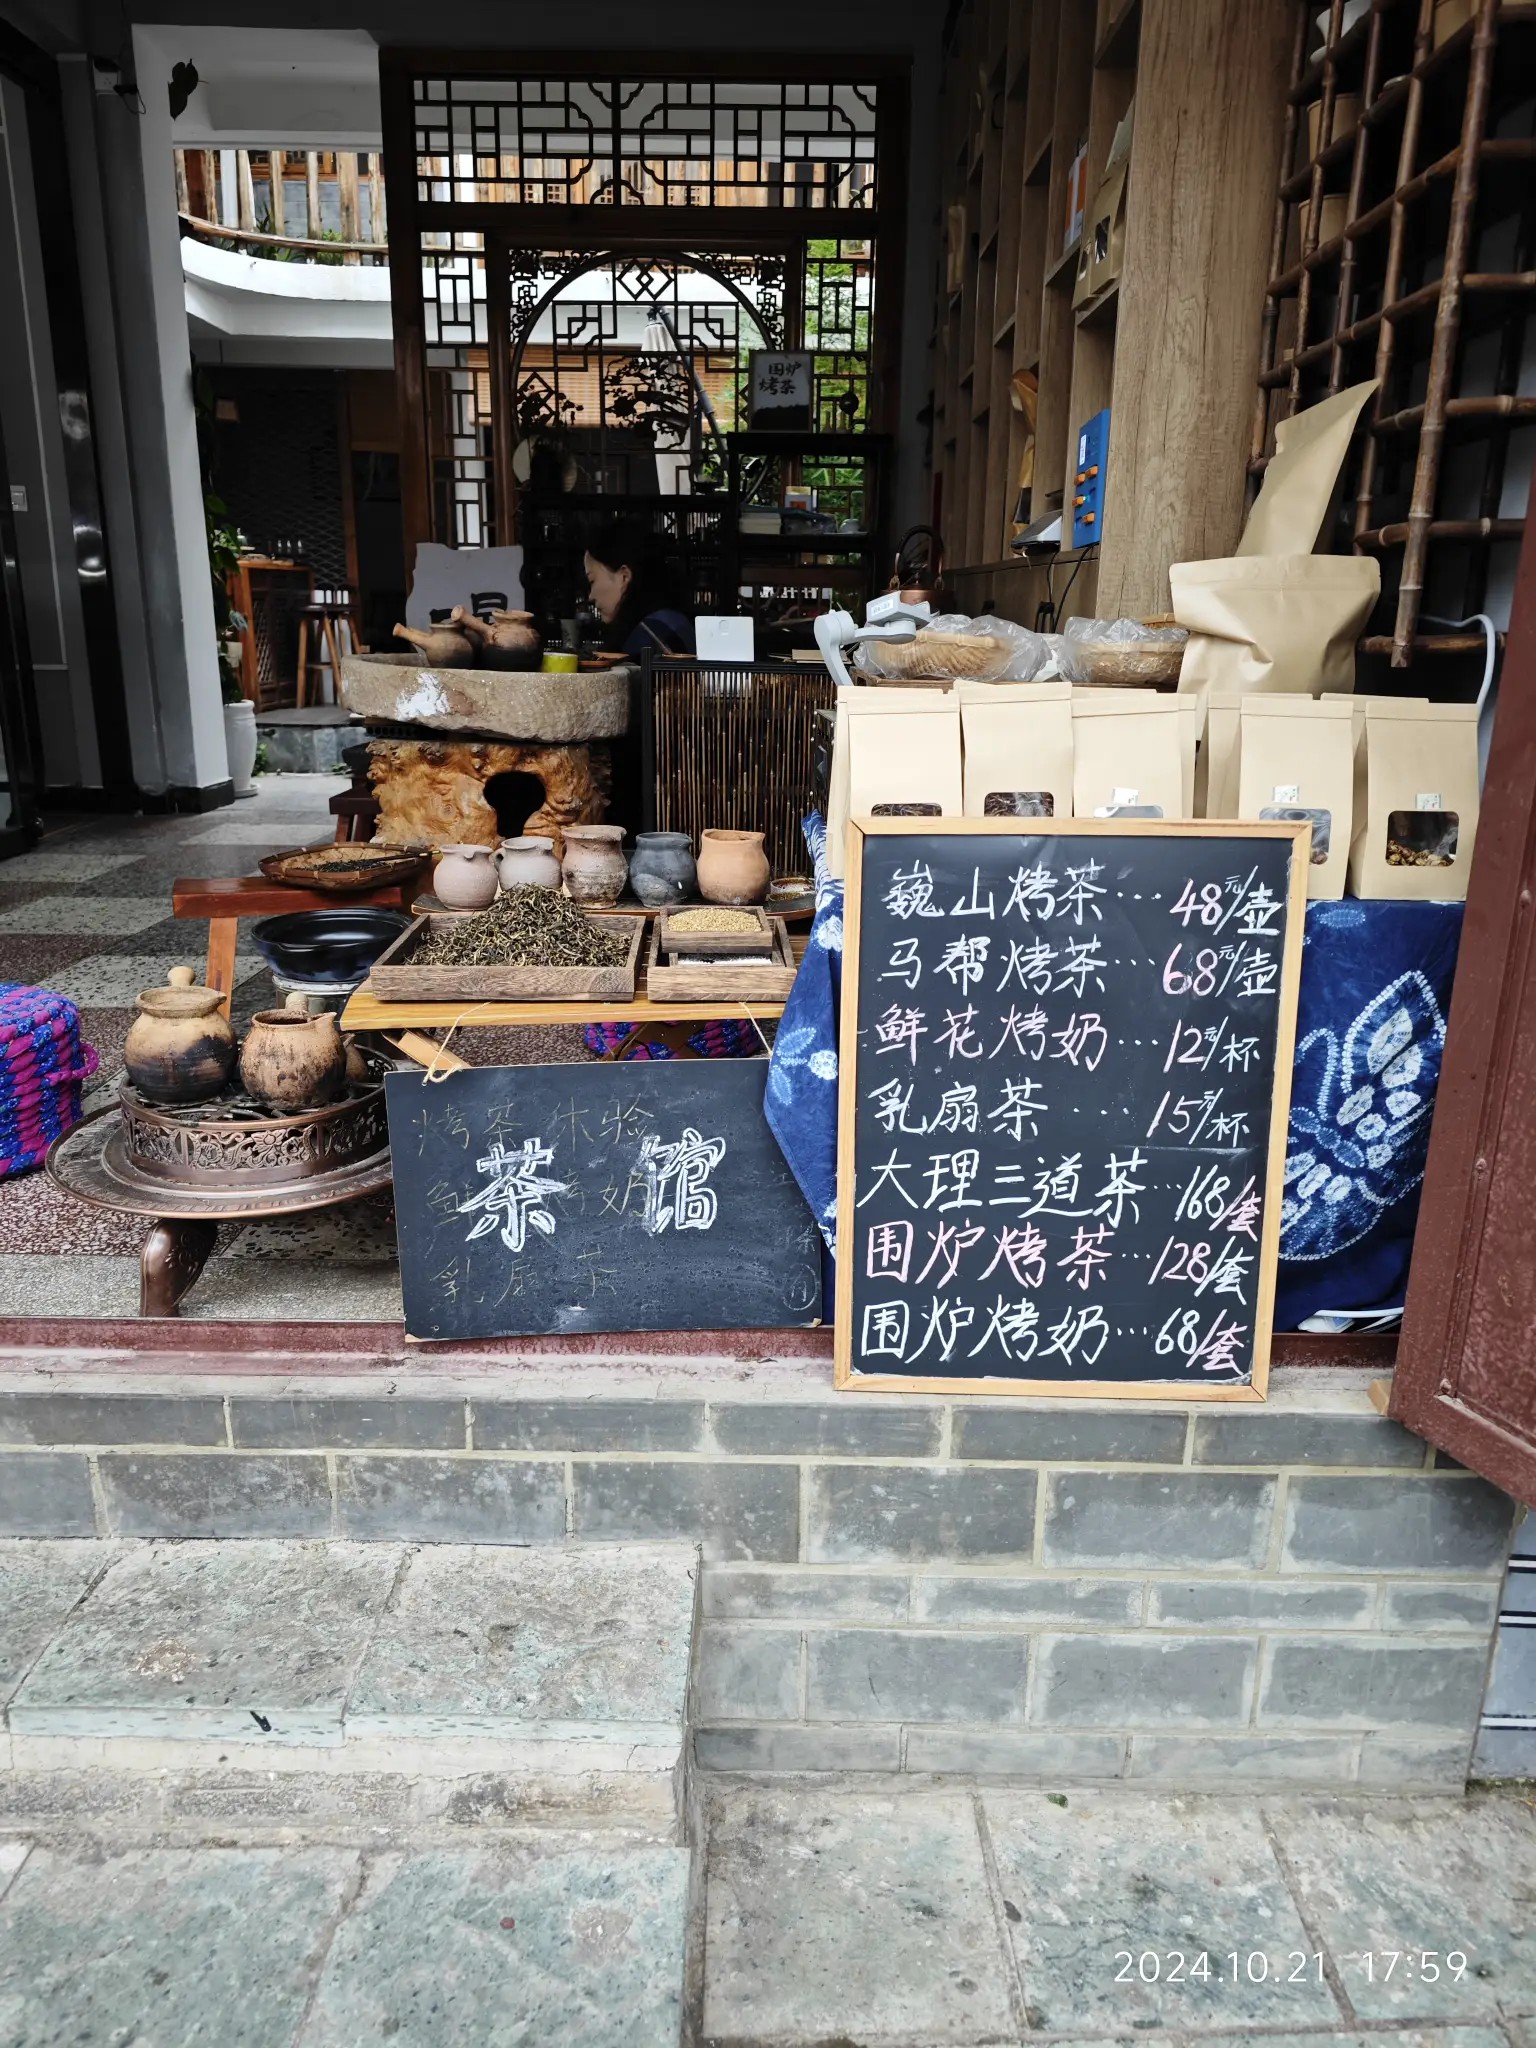 围炉
烤茶
巍山烤茶···48元/壶
马帮烤茶···68元/壶
鲜花烤奶···12元/杯
乳扇茶···15元/杯
大理三道茶···168/套
围炉烤茶···128/套
围炉烤奶···68/套
烤茶体验
茶馆
鲜 烤奶
乳扇茶
2024.10.21 17:59